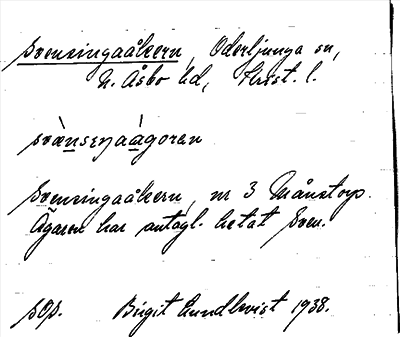 Svensingaåkern, Oderljunga sn,
N. Åsbo hd, Krist. l.
svænseŋaågoran
Svensingaåkern, nr 3 Månstorp.
Ägaren har antagl. hetat Sven.
sOp. Birgit Lundkvist 1938.